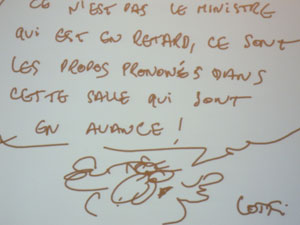 CE N'EST PAS LE MINISTRE
QUI EST EN RETARD, CE SONT
LES PROPOS PRONONCÉS DANS
CETTE SALLE QUI SONT
EN AVANCE !